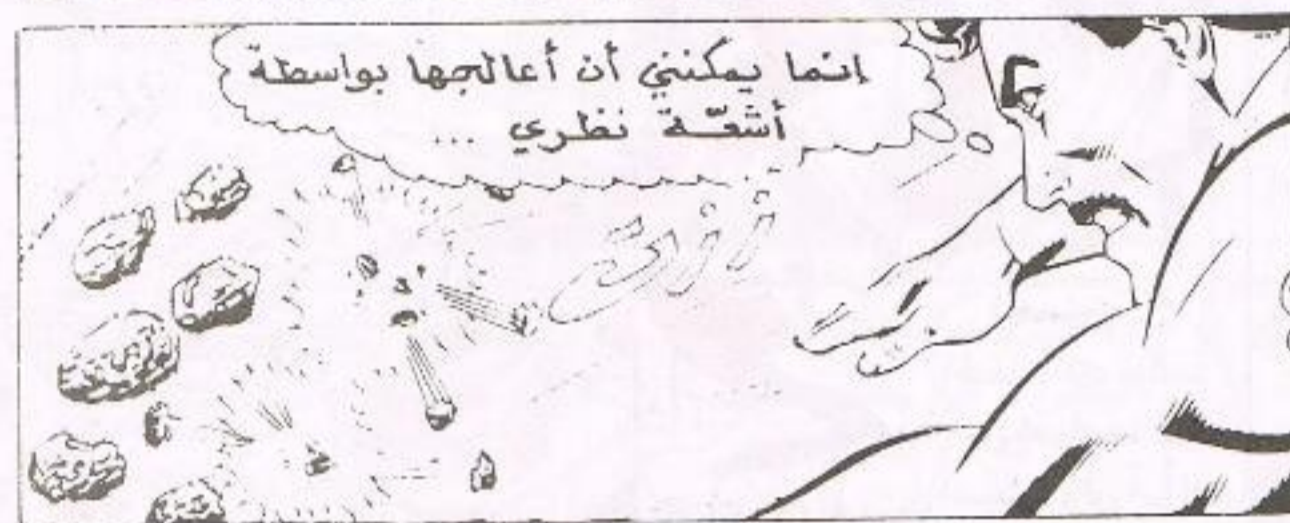 إنما يمكنني أن أعالجها بواسطة
أشعّة نظري ...